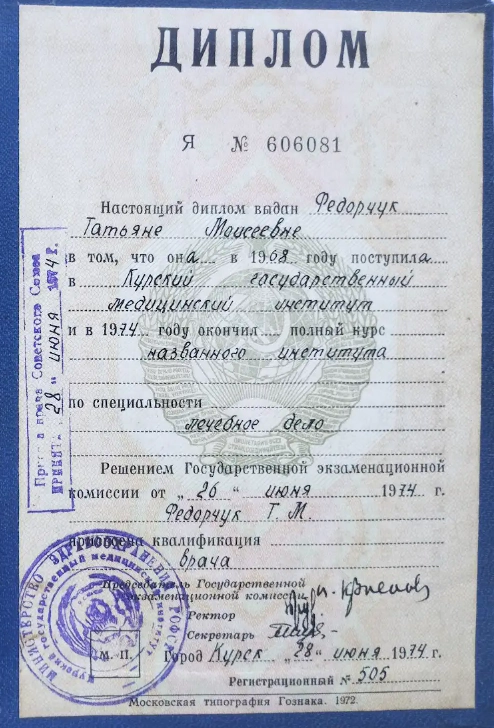 ДИПЛОМ
Я № 606081
Настоящий диплом выдан Федорчук
Татьяне Моисеевне
в том, что она в 1968 году поступила
в Курский государственный
медицинский институт
и в 1974 году окончил полный курс
названного института
по специальности
лечебное дело
Решением Государственной экзаменационной
комиссии от „26“ июня 1974 г.
Федорчук Т. М.
присвоена квалификация
врача
Председатель Государственной
экзаменационной комиссии
Ректор
Секретарь
М. П.
Город Курск „28“ июня 1974 г.
Регистрационный № 505
Московская типография Гознака. 1972.
Присяга врача Советского Союза
ПРИНЯТА „28“ июня 1974 г.
МИНИСТЕРСТВО ЗДРАВООХРАНЕНИЯ РСФСР
Курский государственный медицинский институт